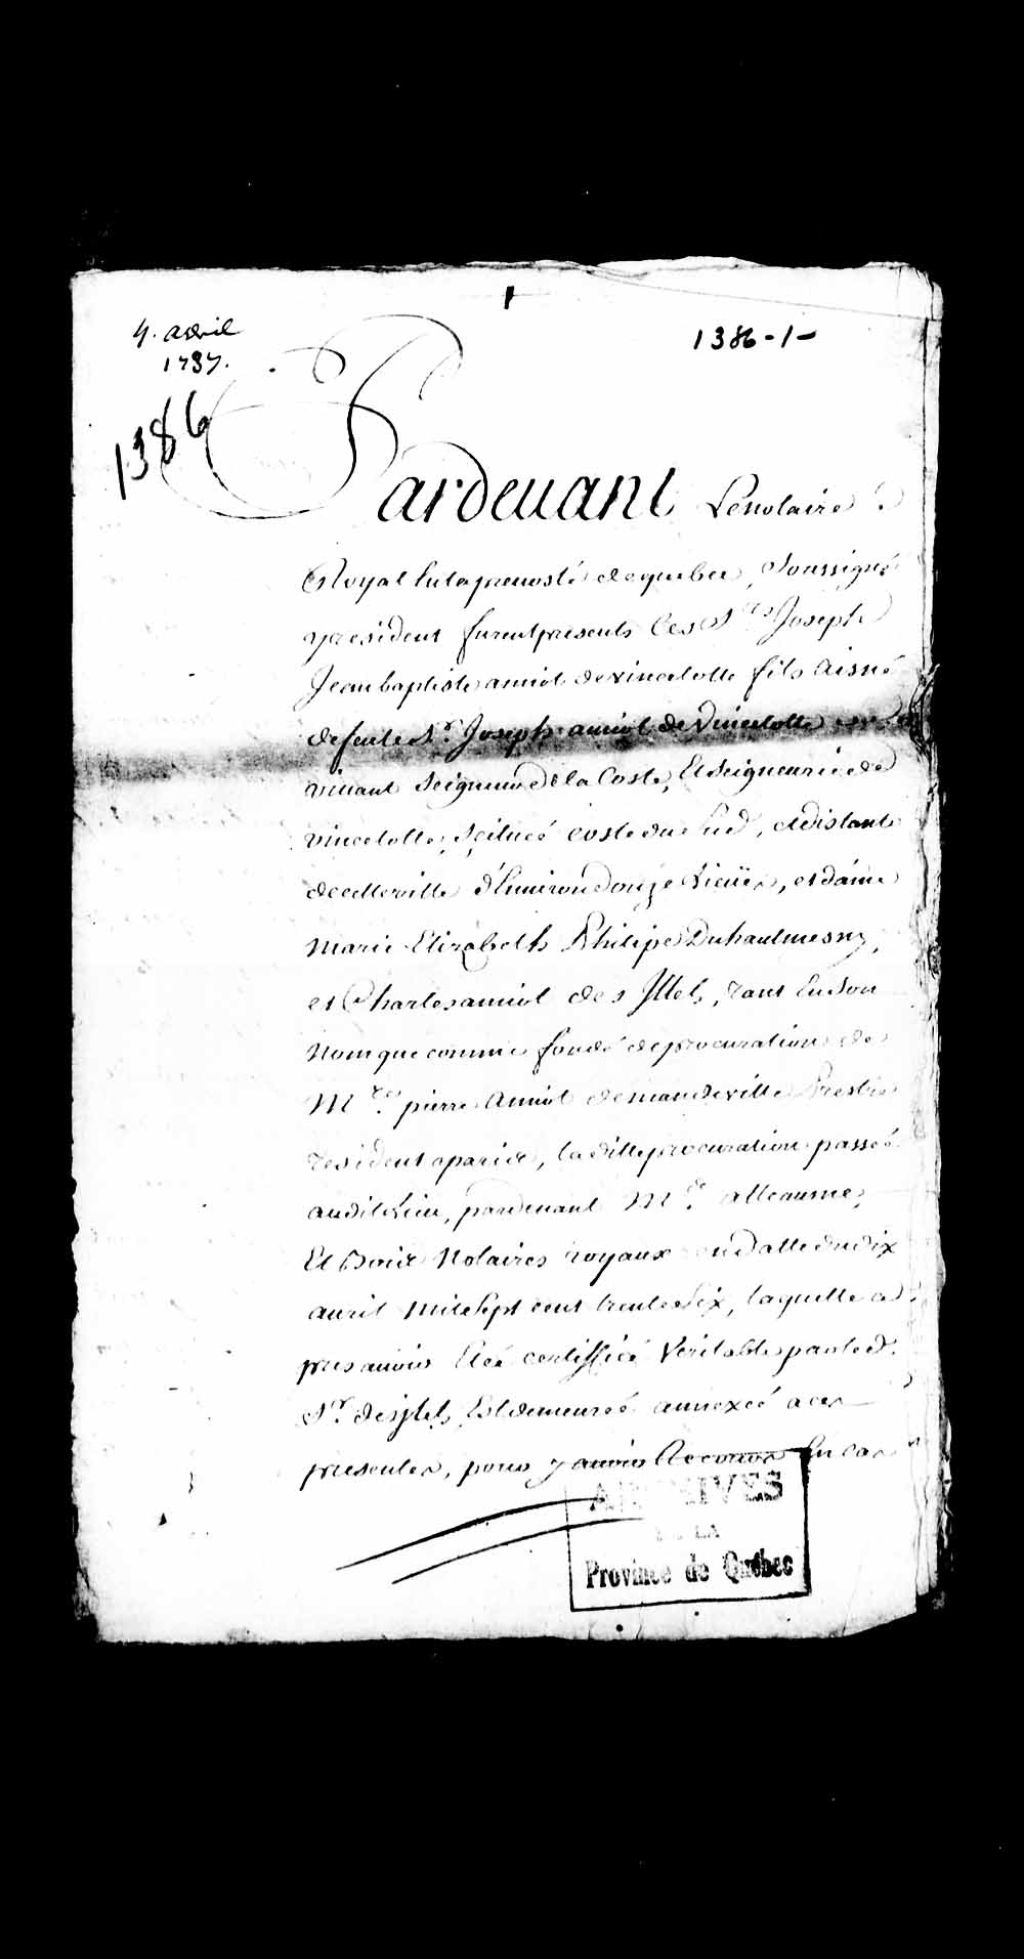 1
4. avril
1737.
1386-1-
1386
Pardeuant Lenotaire
Royal En la preuosté de quebec, Soussigné
y resident furent presents les Srs Joseph
Jean baptiste amiot de vincelotte fils Aisné
de feu le Sr. Joseph amiot de Vincelotte
viuant Seigneur de la Coste, Et Seigneurie de
vincelotte, scitueé coste du Sud, et distante
de cette ville d'Enuiron Douze Lieües, et dame
Marie Elizabeth Philipe Duhautmesny,
et Charles amiot des Jllets, Tant En Son
Nom que comme fondé de procuration de
Mre. pierre Amiot de mandeville Prestre
resident a paris, la ditte procuration passeé
audit Lieu, pardeuant Me. alleaume,
Et Doux Notaires royaux en datte du dix
auril Mile Sept cent trente Six, laquelle a
pres auoir Eté certiffieé Veritable par led.
Sr. des jlets, Est demeureé annexeé a ces
presentes, pour y auoir Recours En cas
ARCHIVES
DE LA
Province de Québec